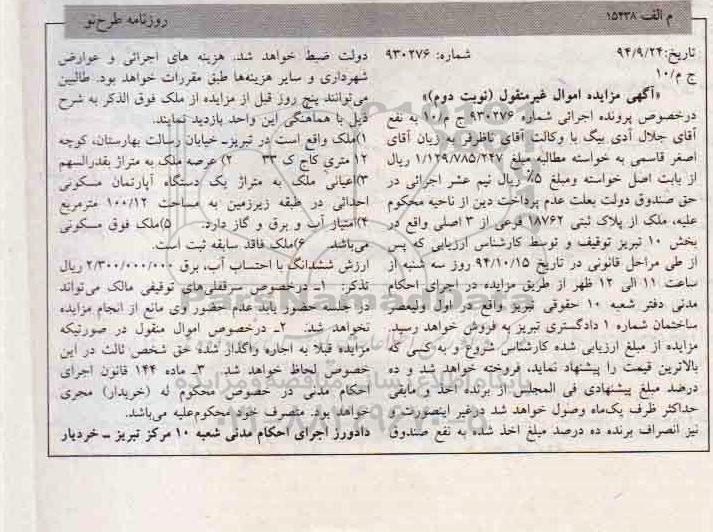 م الف ۱۵۴۳۸
روزنامه طرح‌نو
تاریخ:۹۴/۹/۲۴ شماره: ۹۳۰۲۷۶
ج م/۱۰
«آگهی مزایده اموال غیرمنقول (نوبت دوم)»
درخصوص پرونده اجرائی شماره ۹۳۰۲۷۶ ج م/۱۰ به نفع
آقای جلال آدی بیگ با وکالت آقای ناظرفر به زیان آقای
اصغر قاسمی به خواسته مطالبه مبلغ ۱/۱۲۹/۷۸۵/۲۴۷ ریال
از بابت اصل خواسته ومبلغ ۵٪ ریال نیم عشر اجرائی در
حق صندوق دولت بعلت عدم پرداخت دین از ناحیه محکوم
علیه، ملک از پلاک ثبتی ۱۸۷۶۲ فرعی از ۳ اصلی واقع در
بخش ۱۰ تبریز توقیف و توسط کارشناس ارزیابی که پس
از طی مراحل قانونی در تاریخ ۹۴/۱۰/۱۵ روز سه شنبه از
ساعت ۱۱ الی ۱۲ ظهر از طریق مزایده در اجرای احکام
مدنی دفتر شعبه ۱۰ حقوقی تبریز واقع در اول ولیعصر
ساختمان شماره ۱ دادگستری تبریز به فروش خواهد رسید.
مزایده از مبلغ ارزیابی شده کارشناس شروع و به کسی که
بالاترین قیمت را پیشنهاد نماید، فروخته خواهد شد و ده
درصد مبلغ پیشنهادی فی المجلس از برنده اخذ و مابقی
حداکثر ظرف یک‌ماه وصول خواهد شد درغیر اینصورت و
نیز انصراف برنده ده درصد مبلغ اخذ شده به نفع صندوق
دولت ضبط خواهد شد. هزینه های اجرائی و عوارض
شهرداری و سایر هزینه‌ها طبق مقررات خواهد بود. طالبین
می‌توانند پنج روز قبل از مزایده از ملک فوق الذکر به شرح
ذیل با هماهنگی این واحد بازدید نمایند.
۱)ملک واقع است در تبریزـ خیابان رسالت بهارستان، کوچه
۱۲ متری کاج ک ۳۳ ۲) عرصه ملک به متراژ بقدرالسهم
۳)اعیانی ملک به متراژ یک دستگاه آپارتمان مسکونی
احداثی در طبقه زیرزمین به مساحت ۱۰۰/۱۲ مترمربع
۴)امتیاز آب و برق و گاز دارد. ۵)ملک فوق مسکونی
می‌باشد. ۶)ملک فاقد سابقه ثبت است.
ارزش ششدانگ با احتساب آب، برق ۲/۳۰۰/۰۰۰/۰۰۰ ریال
تذکر: ۱ـ درخصوص سرقفلی‌های توقیفی مالک می‌تواند
در جلسه حضور یابد عدم حضور وی مانع از انجام مزایده
نخواهد شد. ۲ـ درخصوص اموال منقول در صورتیکه
مزایده قبلا به اجاره واگذار شده حق شخص ثالث در این
خصوص لحاظ خواهد شد ۳ـ ماده ۱۴۴ قانون اجرای
احکام مدنی در خصوص محکوم له (خریدار) مجری
خواهد بود. متصرف خود محکوم‌علیه می‌باشد.
دادورز اجرای احکام مدنی شعبه ۱۰ مرکز تبریز ـ خردیار
ParsNamadData